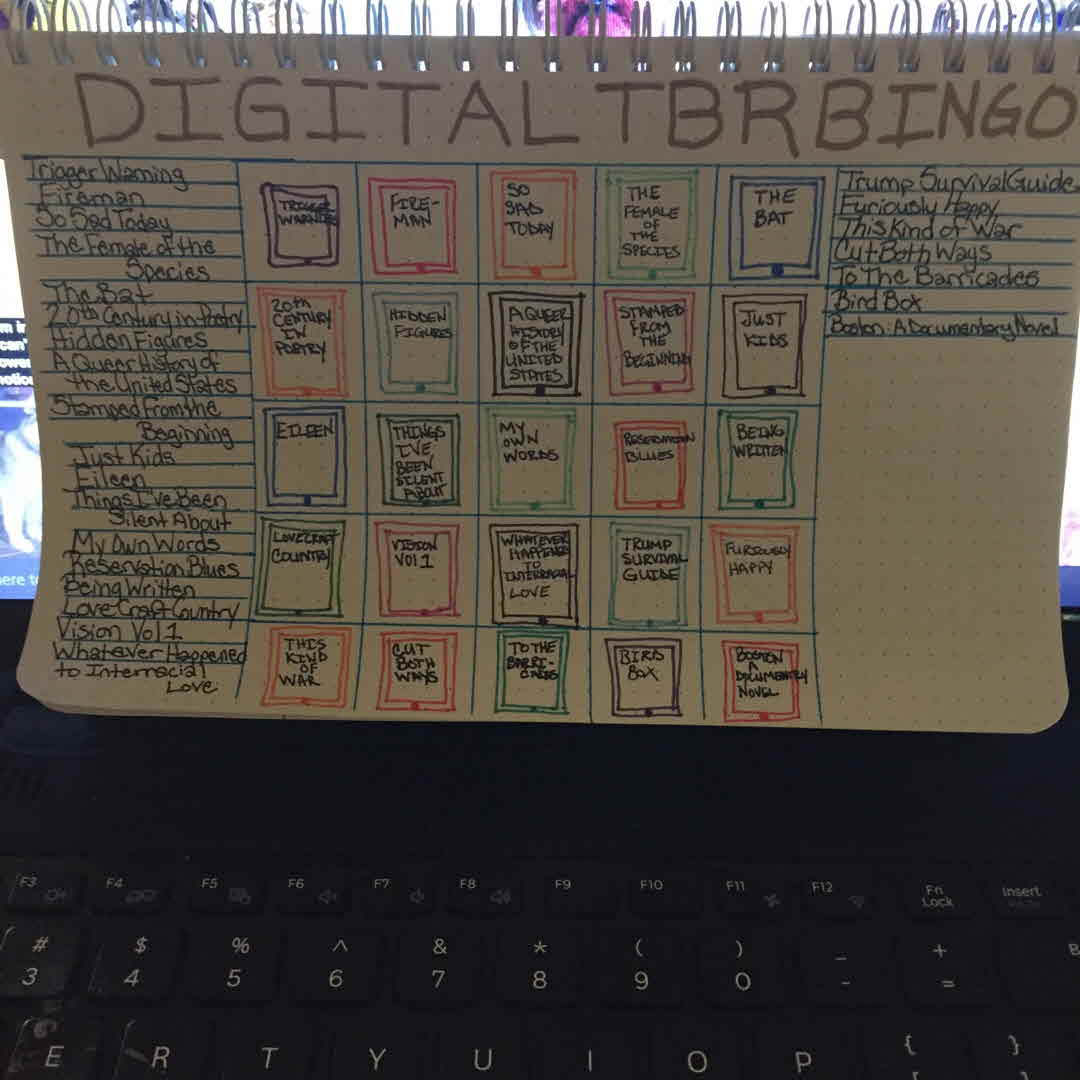 DIGITAL TBR BINGO
Trigger Warning
Fireman
So Sad Today
The Female of the
Species
The Bat
20th Century in Poetry
Hidden Figures
A Queer History of
the United States
Stamped From the
Beginning
Just Kids
Eileen
Things I've Been
Silent About
My Own Words
Reservation Blues
Being Written
LoveCraft Country
Vision Vol 1
Whatever Happened
to Interracial
Love
TRIGGER
WARNING
FIRE-
MAN
SO
SAD
TODAY
THE
FEMALE
OF
THE
SPECIES
THE
BAT
20th
CENTURY
IN
POETRY
HIDDEN
FIGURES
A QUEER
HISTORY
OF THE
UNITED
STATES
STAMPED
FROM
THE
BEGINNING
JUST
KIDS
EILEEN
THINGS
I'VE
BEEN
SILENT
ABOUT
MY
OWN
WORDS
RESERVATION
BLUES
BEING
WRITTEN
LOVECRAFT
COUNTRY
VISION
VOL 1
WHATEVER
HAPPENED
TO
INTERRACIAL
LOVE
TRUMP
SURVIVAL
GUIDE
FURIOUSLY
HAPPY
THIS
KIND
OF
WAR
CUT
BOTH
WAYS
TO THE
BARRI-
CADES
BIRD
BOX
BOSTON
A
DOCUMENTRY
NOVEL
Trump Survival Guide
Furiously Happy
This Kind of War
Cut Both Ways
To The Barricades
Bird Box
Boston: A Documentary Novel
F3 F4 F5 F6 F7 F8 F9 F10 F11 F12 Fn Lock Insert
# $ % ^ & * ( ) _ +
3 4 5 6 7 8 9 0 - =
E R T Y U I O P { }